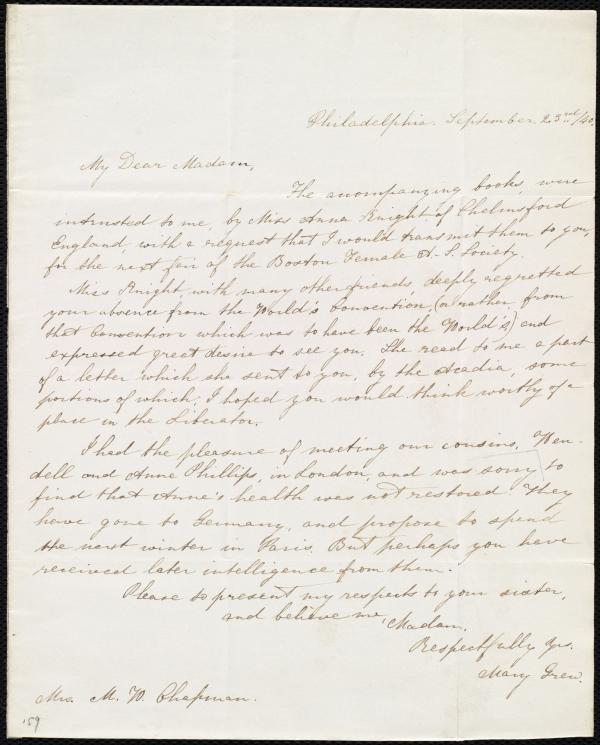 Philadelphia. September. 23rd/40.
My Dear Madam,
The acompanying books, were
intrusted to me, by Miss Anna Knight of Chelmsford
England, with a request that I would transmit them to you,
for the next fair of the Boston Female A. S. Society.
Miss Knight, with many other friends, deeply regretted
your absence from the World's Convention, (or rather, from
that Convention which was to have been the World's,) and
expressed great desire to see you. She read to me a part
of a letter which she sent to you, by the Acadia, some
portions of which, I hoped you would think worthy of a
place in the Liberator.
I had the pleasure of meeting our cousins, Wen-
dell and Anne Phillips, in London, and was sorry to
find that Anne's health was not restored. They
have gone to Germany, and propose to spend
the next winter in Paris. But perhaps you have
received later intelligence from them.
Please to present my respects to your sister,
and believe me, Madam,
Respectfully Yrs.
Mary Grew.
Mrs. M. W. Chapman.
159